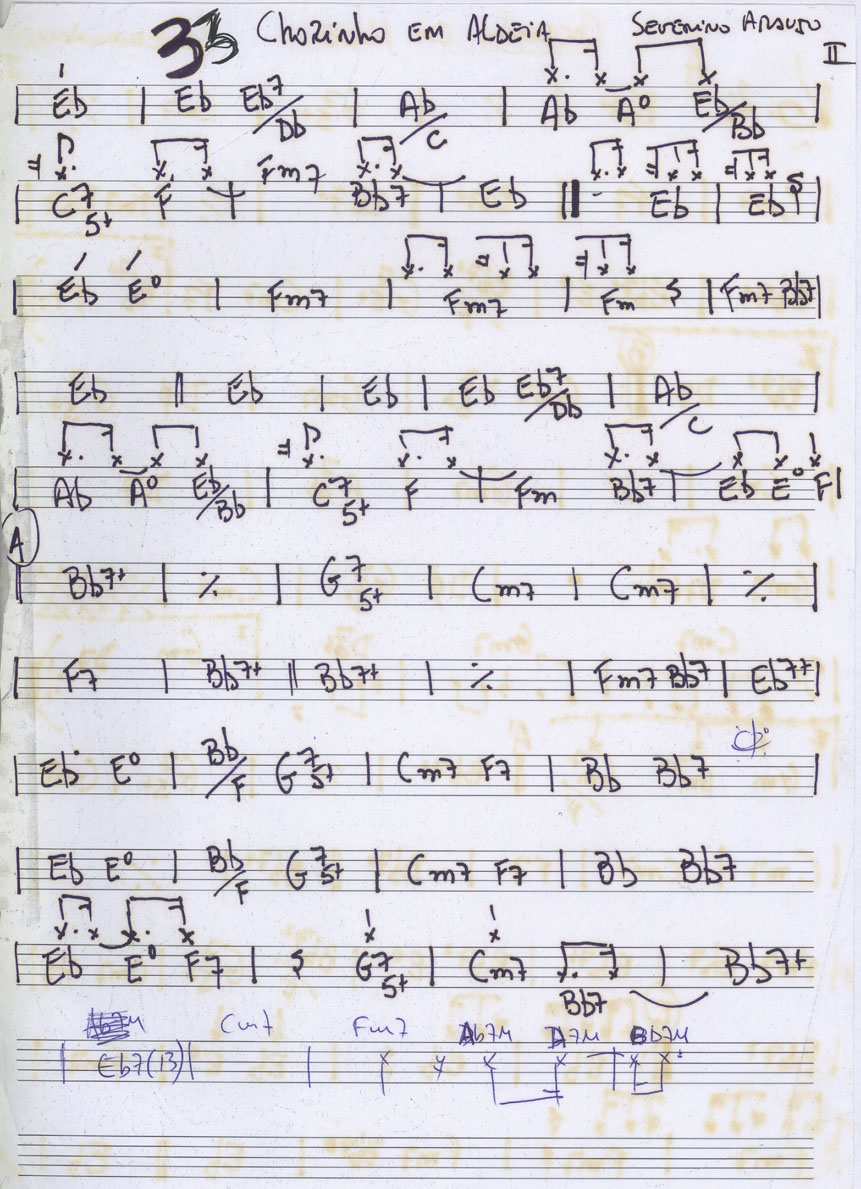 33 Chorinho em Aldeia Severino Araujo II
| Eb | Eb Eb7/Db | Ab/C | Ab A° Eb/Bb |
| C7 5+ F Fm7 Bb7 | Eb || Eb | Eb |
| Eb E° | Fm7 | Fm7 | Fm | Fm7 Bb7 |
| Eb || Eb | Eb | Eb Eb7/Db | Ab/C |
| Ab A° Eb/Bb | C7 5+ F Fm Bb7 | Eb E° F |
A
| Bb7+ | ٪ | G7 5+ | Cm7 | Cm7 | ٪ |
| F7 | Bb7+ || Bb7+ | ٪ | Fm7 Bb7 | Eb7+ |
| Eb E° | Bb/F G7 5+ | Cm7 F7 | Bb Bb7 |
| Eb E° | Bb/F G7 5+ | Cm7 F7 | Bb Bb7
| Eb E° F7 | G7 5+ | Cm7 Bb7 | Bb7+
Cm7 Fm7 Ab7M D7M Bb7M
| Eb7(13) |